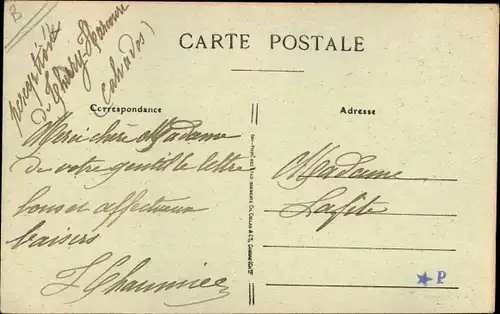 B
perception
de Thury-Harcourt
Calvados)
CARTE POSTALE
Correspondance
Adresse
Merci chère Madame
de votre gentille lettre
bons et affectueux
baisers
Madame
Lafite
P